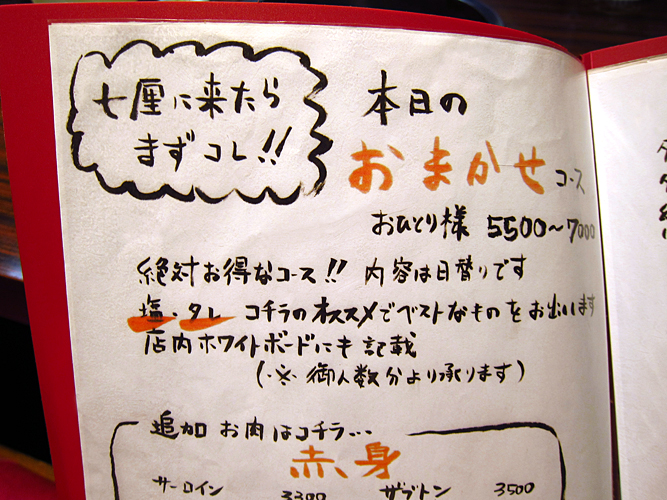 七厘に来たら
まずコレ!!
本日の
おまかせコース
おひとり様 5500〜7000
絶対お得なコース!! 内容は日替りです
塩・タレ コチラのオススメでベストなものをお出しします
店内ホワイトボードにも記載
(※ 御人数分より承ります)
追加 お肉はコチラ...
赤身
サーロイン 3300 ザブトン 3500